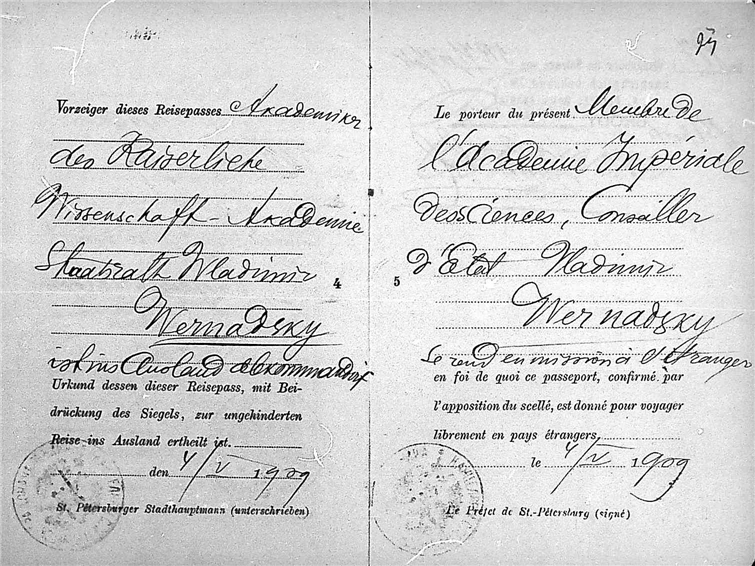 Vorzeiger dieses Reisepasses Akademiker
der Kaiserliche
Wissenschaft-Akademie
Staatsrath Wladimir
Wernadsky
ist ins Ausland abkommandirt
Urkund dessen dieser Reisepass, mit Bei-
drückung des Siegels, zur ungehinderten
Reise ins Ausland ertheilt ist.
den 4/V 1909
St. Petersburger Stadthauptmann (unterschrieben)
4
Le porteur du présent Membre de
l'Académie Impériale
des Sciences, Consailler
d'Etat Vladimir
Wernadsky
se rend en mission à l'étranger
en foi de quoi ce passeport, confirmé par
l'apposition du scellé, est donné pour voyager
librement en pays étrangers
le 4/V 1909
Le Préfet de St.-Pétersburg (signé)
5